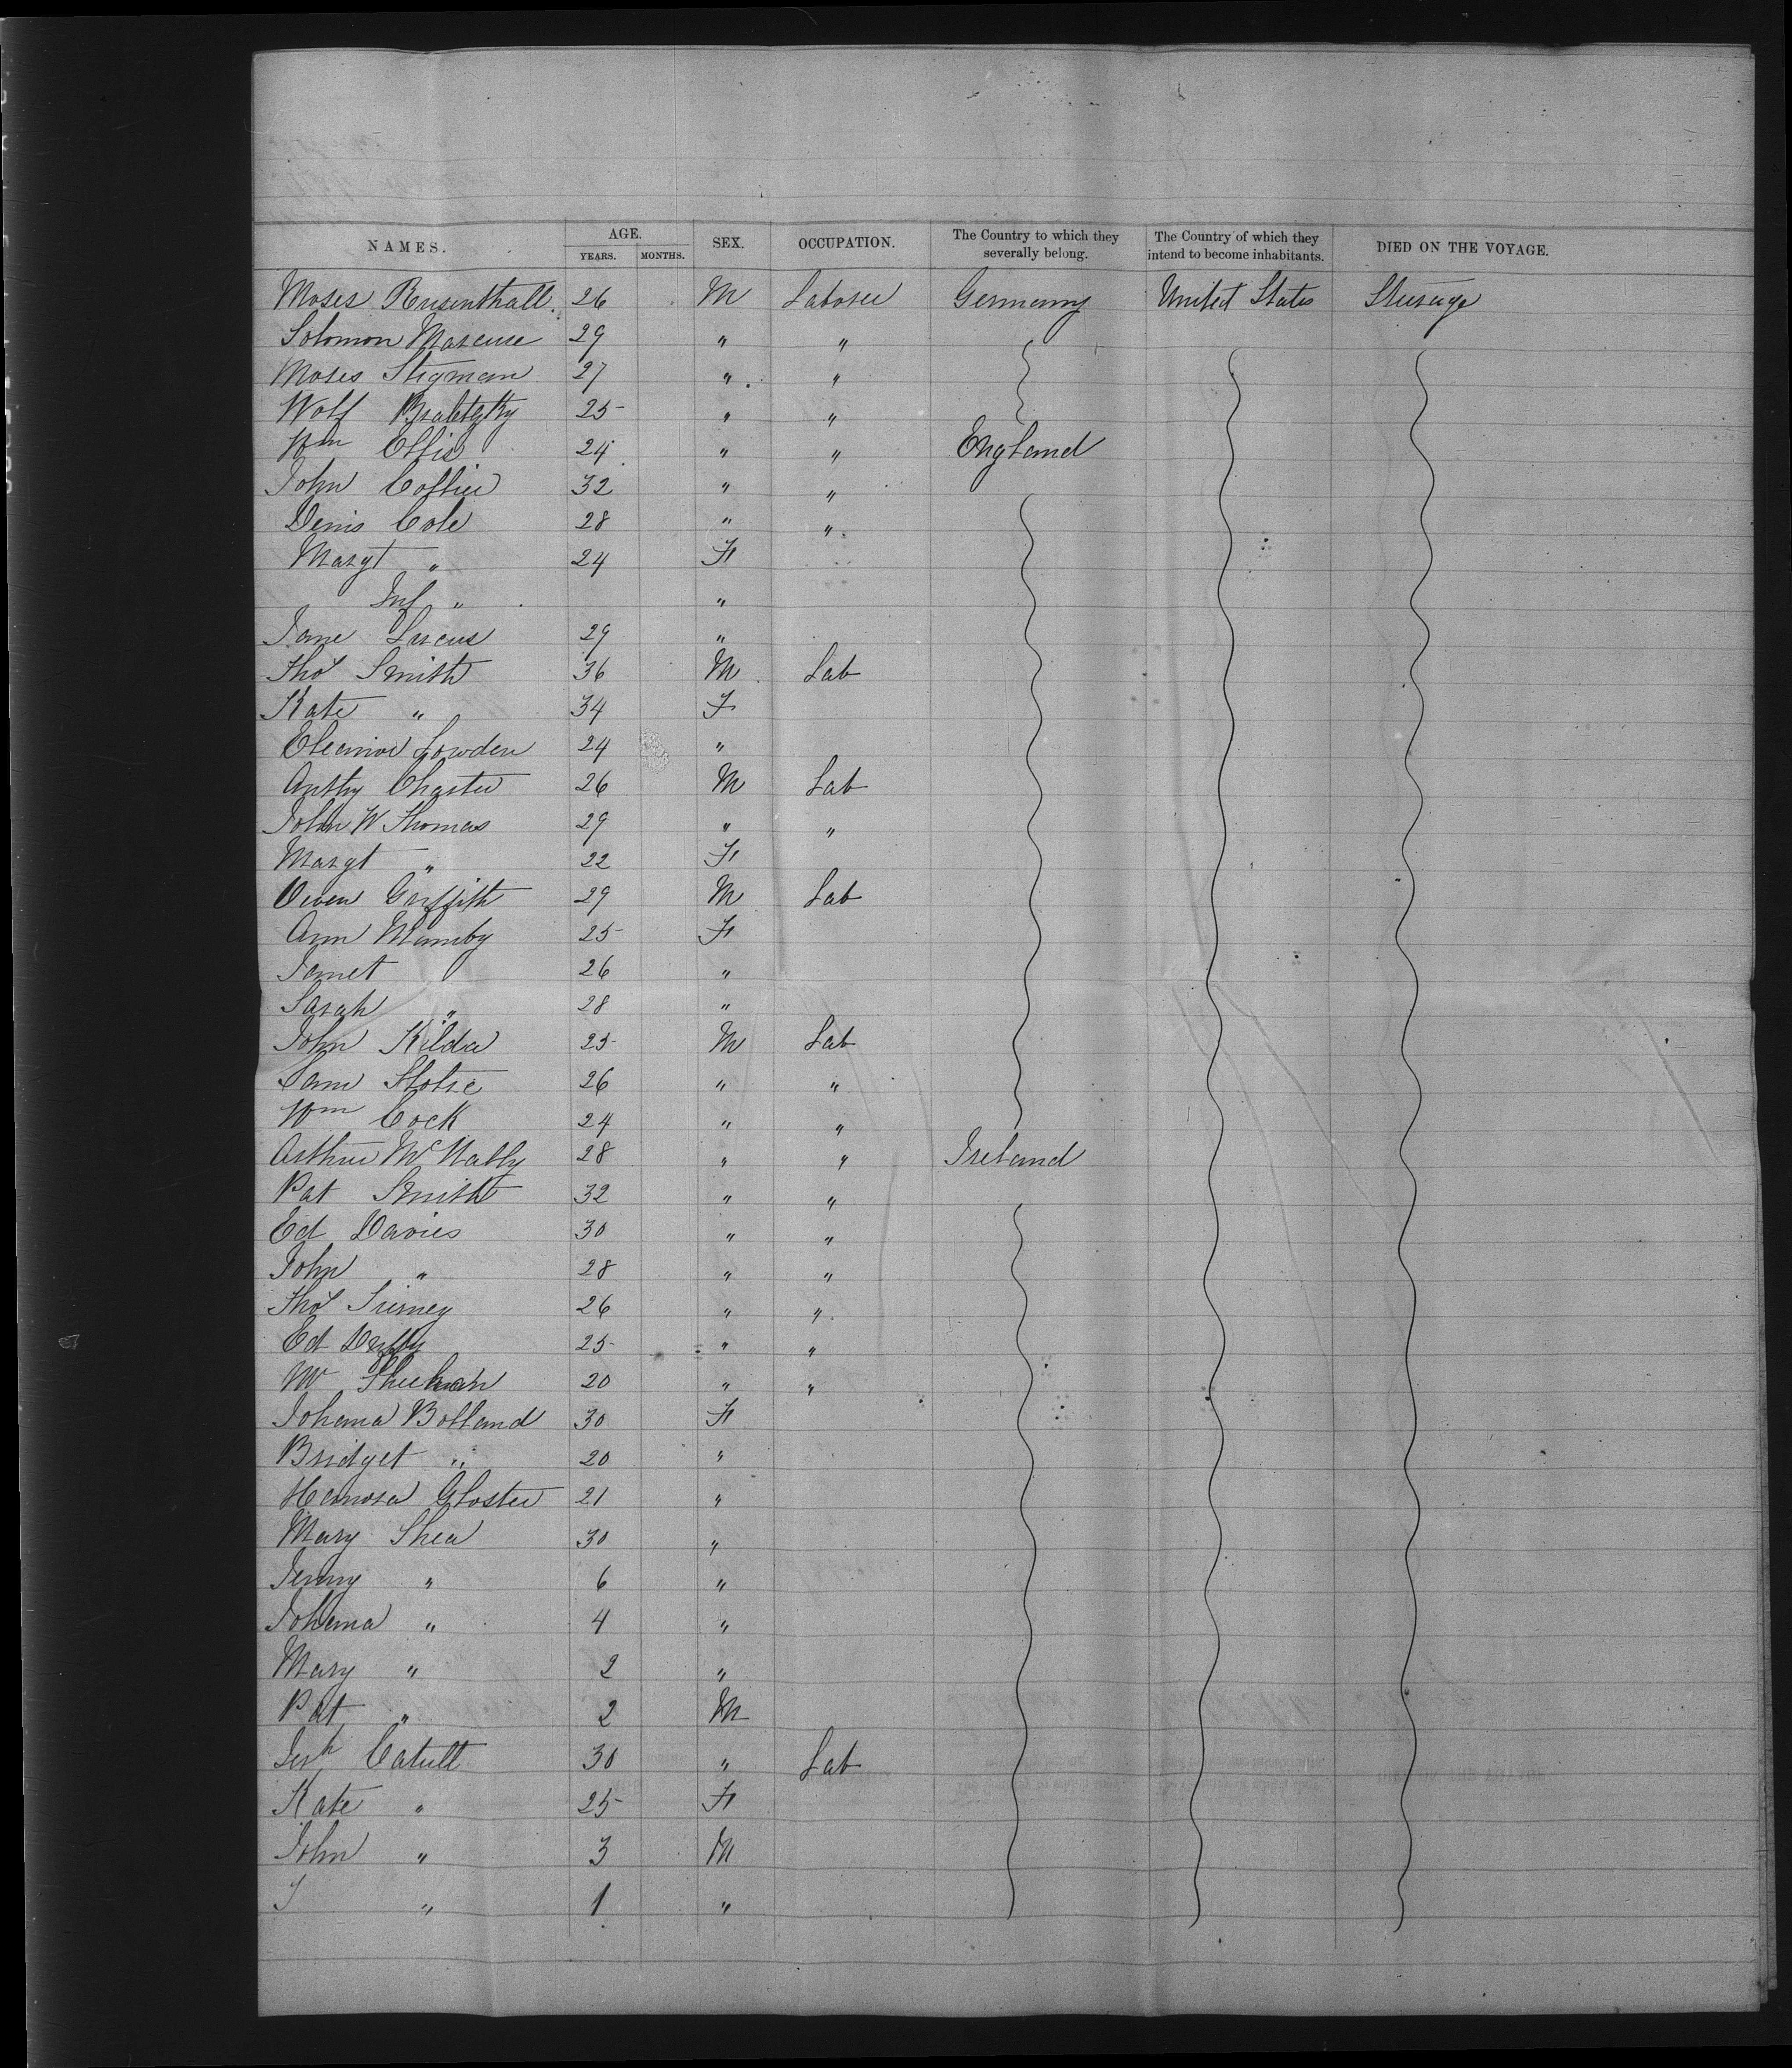 NAMES. AGE. YEARS. MONTHS. SEX. OCCUPATION. The Country to which they severally belong. The Country of which they intend to become inhabitants. DIED ON THE VOYAGE.
Moses Rosenthall 26 M Laborer Germany United States Steerage
Solomon Marcuse 29 " "
Moses Stigman 27 " "
Wolf 25 " "
Wm Ellis 24 " " England
John Collier 32 " "
Denis Cole 28 " "
Margt " 24 F
Inf " "
Jane Lucus 29 "
Thos Smith 36 M Lab
Kate " 34 F
Eleanor Lowden 24 "
Anthy Chaster 26 M Lab
John W Thomas 29 " "
Margt " 22 F
Owen Griffith 29 M Lab
Ann Mamby 25 F
Janet 26 "
Sarah " 28 "
John Kilda 25 M Lab
Sam 26 " "
Wm Cock 24 " "
Arthur McNally 28 " " Ireland
Pat Smith 32 " "
Ed Davies 30 " "
John " 28 " "
Thos 26 " "
Ed Duffy 25 " "
W Sheehan 20 " "
Johana Bolland 30 F
Bridget " 20 "
Hanora Gloster 21 "
Mary Shea 30 "
Jenny " 6 "
Johana " 4 "
Mary " 2 "
Pat " 2 M
Jerh 30 " Lab
Kate " 25 F
John " 3 M
J " 1 "